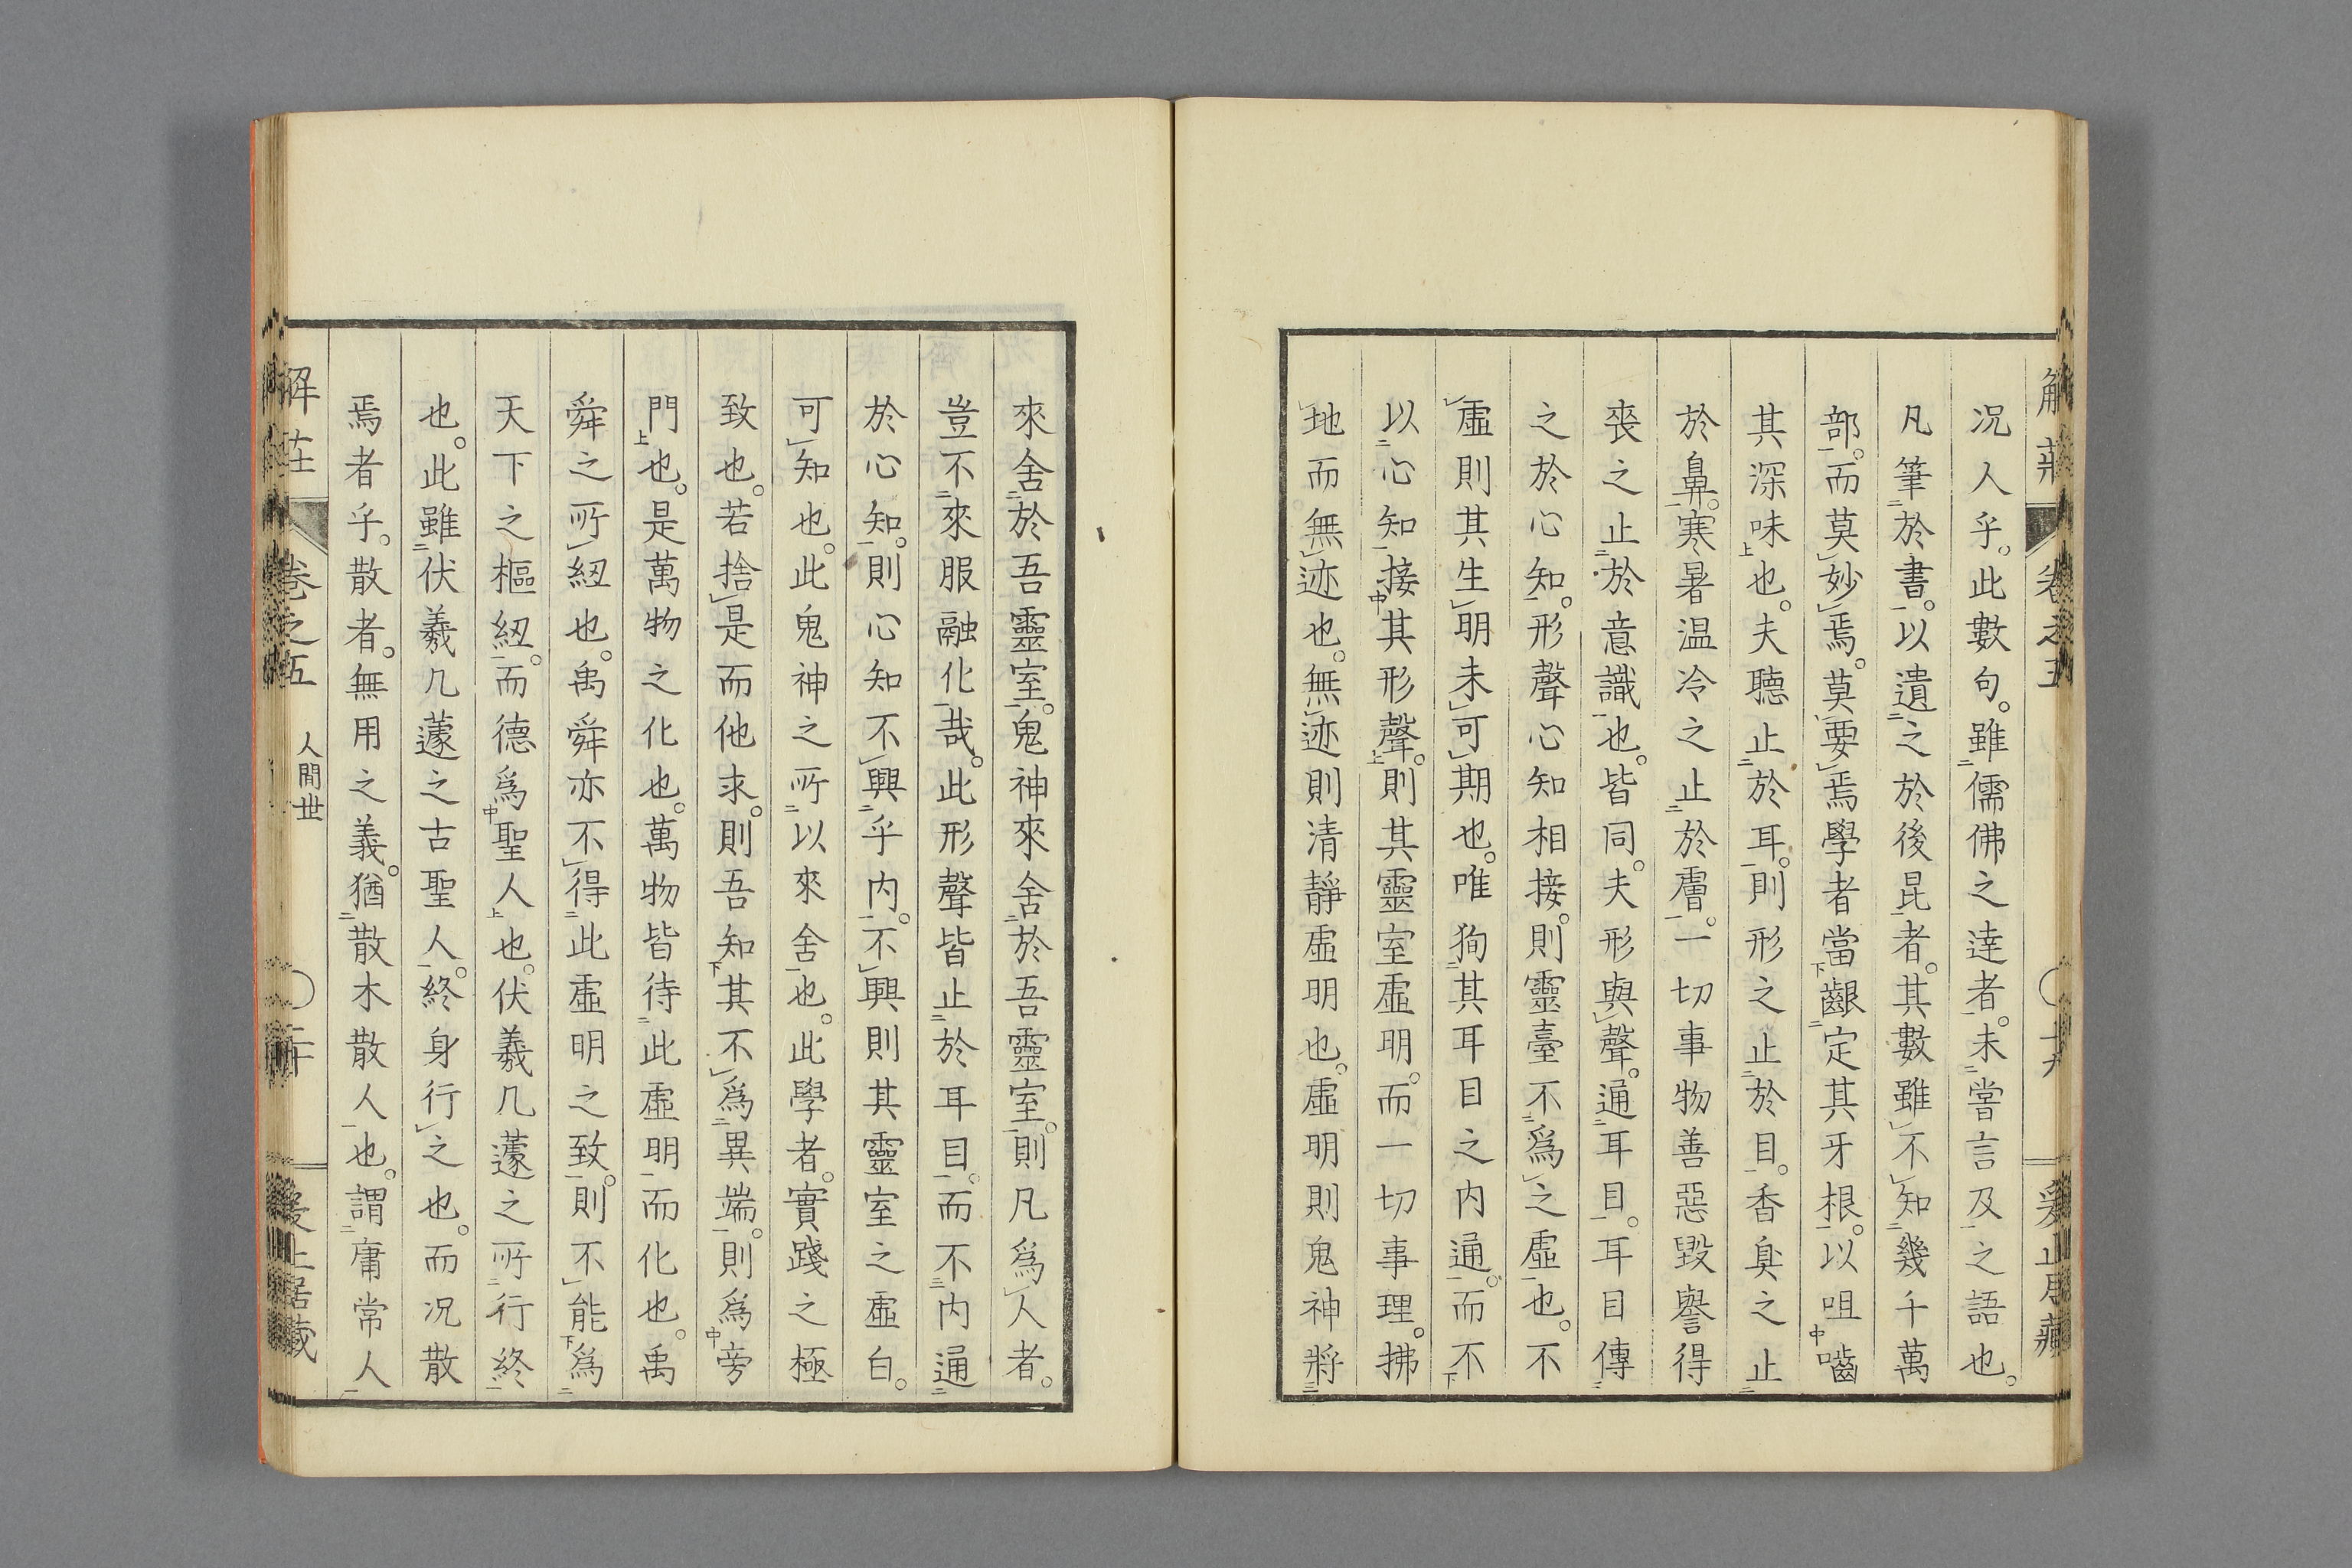 解莊 卷之五 十九 爰止居藏
况人乎。此數句。雖儒佛之達者。未嘗言及之語也。
凡筆於書。以遺之於後昆者。其數雖不知幾千萬
部。而莫妙焉。莫要焉。學者當齦定其牙根。以咀嚙
其深味也。夫聽止於耳。則形之止於目。香臭之止
於鼻。寒暑温冷之止於膚。一切事物善惡毀譽得
喪之止於意識也。皆同。夫形與聲。通耳目。耳目傳
之於心知。形聲心知相接。則靈臺不爲之虛也。不
虛則其生明未可期也。唯狥其耳目之内通。而不
以心知接其形聲。則其靈室虛明。而一切事理。拂
地而無迹也。無迹則清靜虛明也。虛明則鬼神將
來舍於吾靈室。鬼神來舍於吾靈室。則凡爲人者。
豈不來服融化哉。此形聲皆止於耳目。而不内通
於心知。則心知不興乎内。不興則其靈室之虛白。
可知也。此鬼神之所以來舍也。此學者。實踐之極
致也。若捨是而他求。則吾知其不爲異端。則爲旁
門也。是萬物之化也。萬物皆待此虛明而化也。禹
舜之所紐也。禹舜亦不得此虛明之致。則不能爲
天下之樞紐。而德爲聖人也。伏羲几蘧之所行終
也。此雖伏羲几蘧之古聖人。終身行之也。而况散
焉者乎。散者。無用之義。猶散木散人也。謂庸常人
解莊 卷之五 人間世 二十 爰止居藏